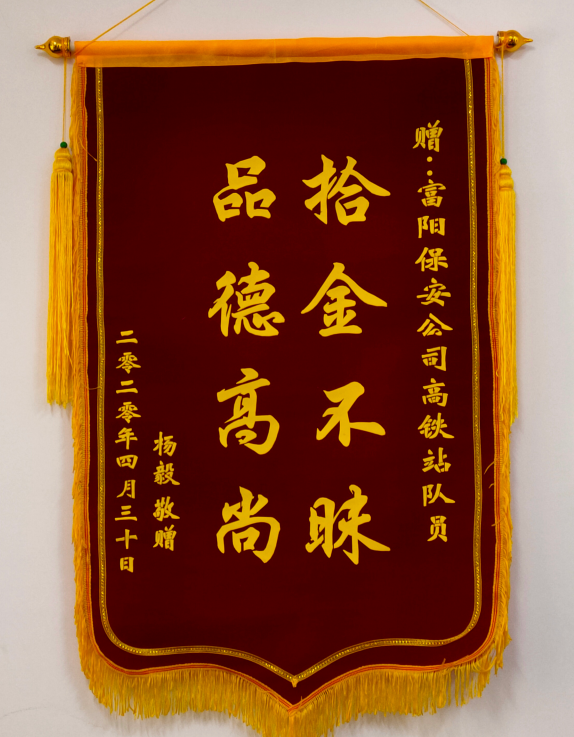 赠：富阳保安公司高铁站队员
拾金不昧
品德高尚
杨毅 敬赠
二零二零年四月三十日